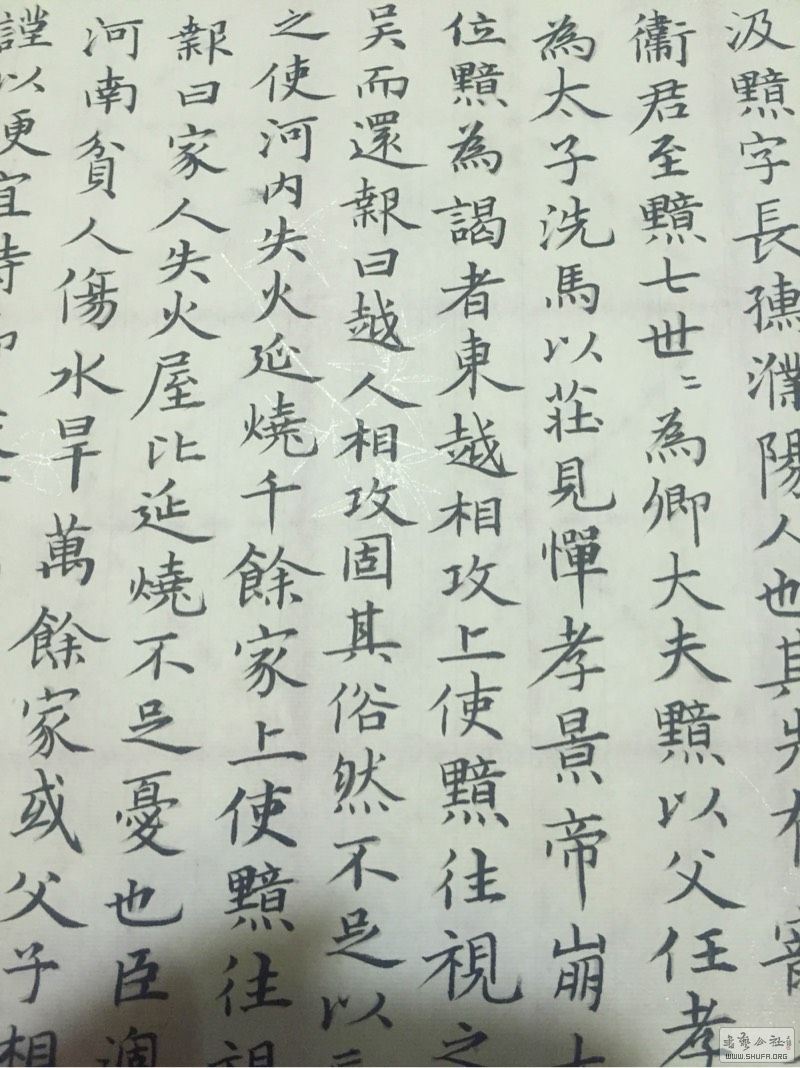 汲黯字長孺濮陽人也其先有
衞君至黯七世〻為卿大夫黯以父任孝
為太子洗馬以莊見憚孝景帝崩
位黯為謁者東越相攻上使黯往視之
吴而還報曰越人相攻固其俗然不足以
之使河内失火延燒千餘家上使黯往視
報曰家人失火屋比延燒不足憂也臣過
河南貧人傷水旱萬餘家或父子相
謹以便宜持節
書藝公社
WWW.SHUFA.ORG